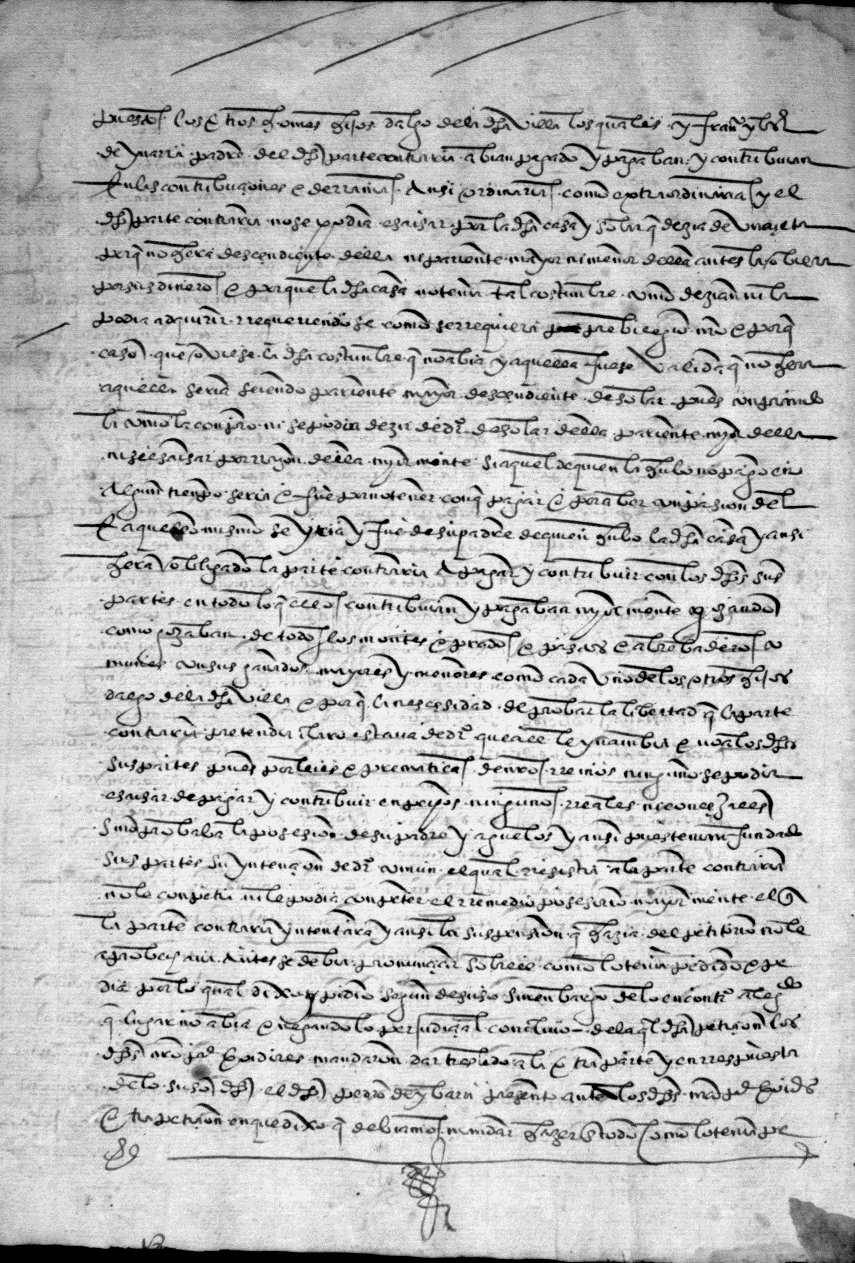 puestos los otros homes hijos dalgo de la dha villa los quales y franco ybañez
de ybarra padre del dho parte contraria abian pagado y pagaban y contribuian
en las contribuçiones e derramas ansi ordinarias como extraordinarias y el
dho parte contraria no se podia escusar por la dha casa y solar q dezia de
porq no hera desçendiente della ni pariente mayor ni menor della antes la
por sus dineros e porque la dha casa no tenia tal costumbre como dezian ni la
podia adquirir rrequeriendose como se rrequeria prebilegio nro e porq
caso que obiese la dha costumbre q no abia y aquella fuese valida q no hera
aquella seria seiendo pariente mayor desçendiente de solar pues
la como la conpro ni se podia dezir de dro de solar della pariente mayor della
ni se escusar por rrazon della mayormente si aquel de quien la hubo no pago en
algun tiempo seria e fue por no tener con q pagar e por aber conpasion del
e aquello mismo seria y fue de su padre de quien hubo la dha casa y ansi
hera obligado la parte contraria a pagar y contribuir con los dhos sus
partes en todo lo q ellos contribuian y pagaban mayormente gozando
como gozaban de todos los montes e prados e pastos e abrebaderos co
munes con sus ganados mayores y menores como cada uno de los otros hijos
dalgo de la dha villa e porq la nesçesidad de probar la libertad q la parte
contraria pretendia claro estava de dro que a el le yncunbia e no a los dhos
sus partes pues por leies e prematicas de nros rreinos ninguno se podia
escusar de pagar y contribuir en pechos ningunos rreales ni conçejales
sino probaba la posesion de su padre y aguelos y ansi pues tenian fundada
sus partes su yntençion de dro comun el qual rresistia a la parte contraria
no le conpetia ni le podia conpeter el rremedio posesorio mayormente el q
la parte contraria yntentara y ansi la suspension q hazia del petitorio no le
aprobechava antes se debia pronunçiar sobre ello como lo tenia pedido e pe
dia por lo qual dixo y pidio segun de suso sin enbargo de lo en contrario alegado
q lugar no abia e negando lo perjudiçial concluio de la ql dha petiçion los
dhos nro presidente e oidores mandaron dar treslado a la otra parte y en rrespuesta
de lo susodho el dho pedro de ybarra presento ante los dhos nro presidente e oidores
otra petiçion en que dixo q debiamos mandar hazer en todo como lo tenia pe